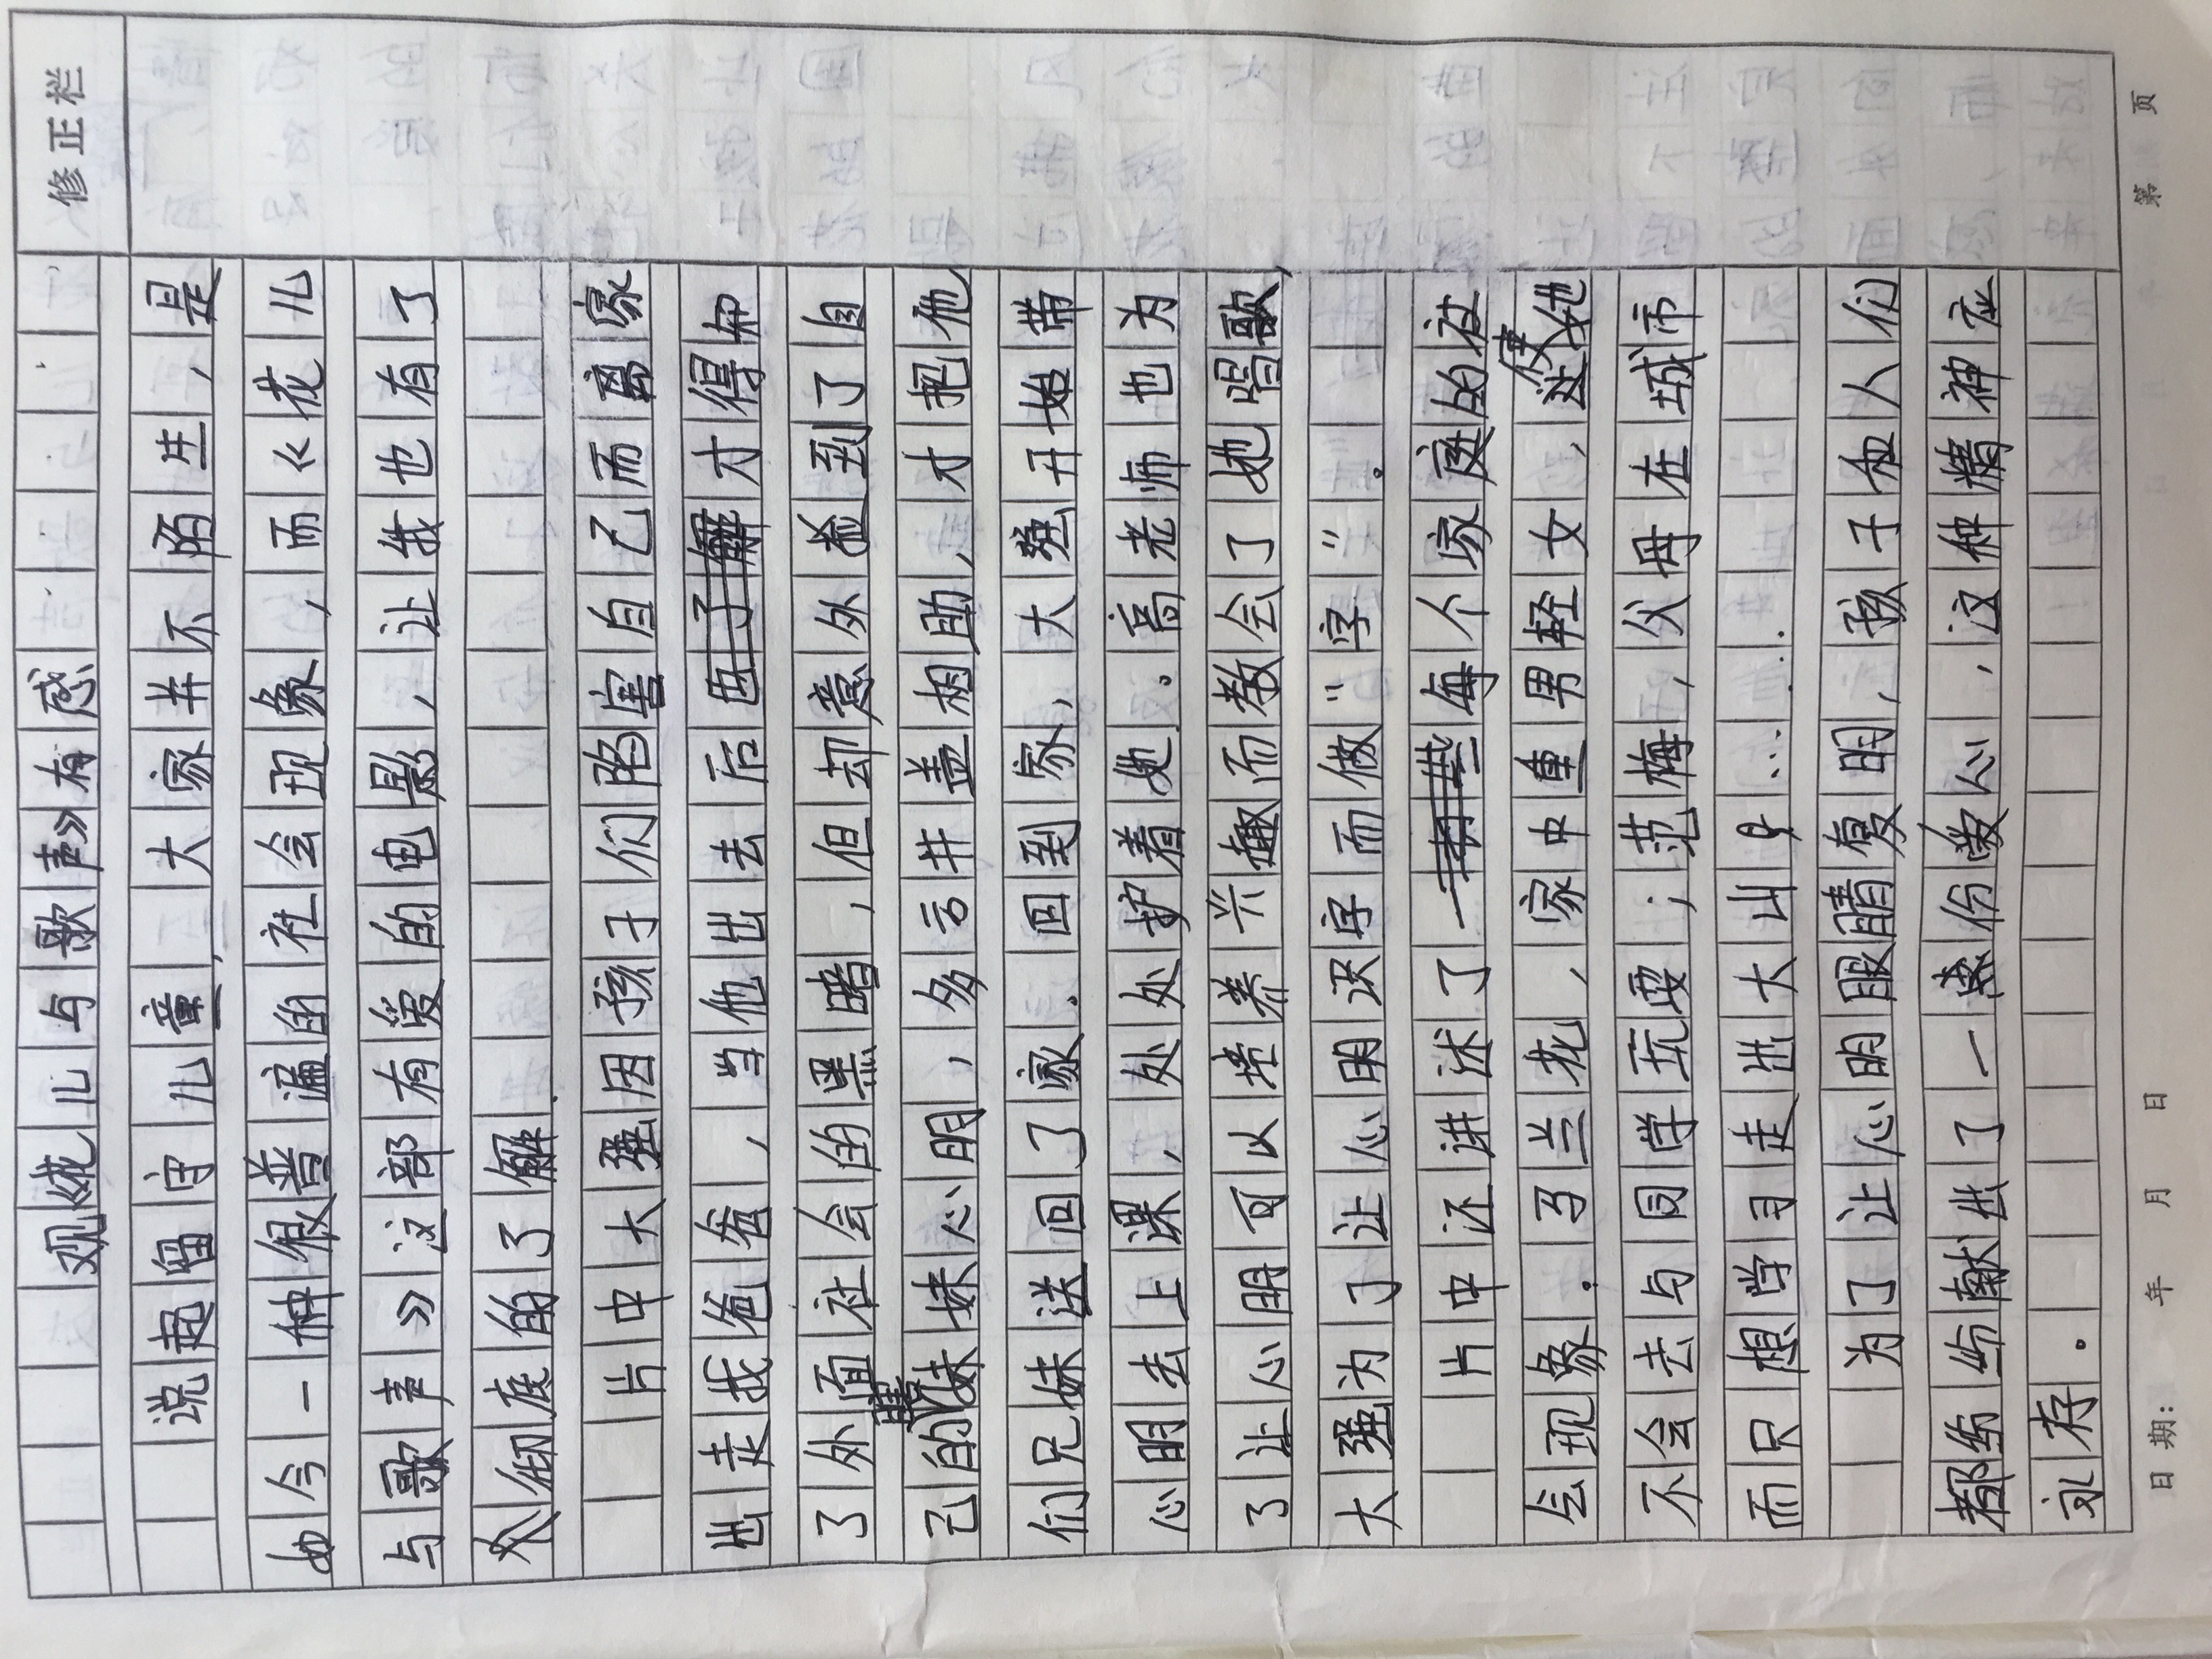 修正栏
观《花儿与歌声》有感
说起留守儿童，大家并不陌生，是
如今一种很普遍的社会现象，而《花儿
与歌声》这部有爱的电影，让我也有了
个彻底的了解.
片中大强因孩子们陷害自己而离家
出走找爸爸，当他出去后才得知
了外面社会的黑暗，但却意外捡到了自
己的妹妹心明，多亏井盖相助，才把他
们兄妹送回了家.回到家，大强开始带
心明去上课，处处护着她。高老师也为
了让心明可以培养兴趣而教会了她唱歌，
大强为了让心明识字而做“字”。
片中还讲述了每个家庭的社
会现象.马兰花，家中重男轻女，使她
不会去与同学玩耍；范梅，父母在城市
而只想学习走出大山……
为了让心明眼睛复明，孩子和人们
都纷纷献出了一份爱心，这种精神应
永存。
日期： 年 月 日 第 页